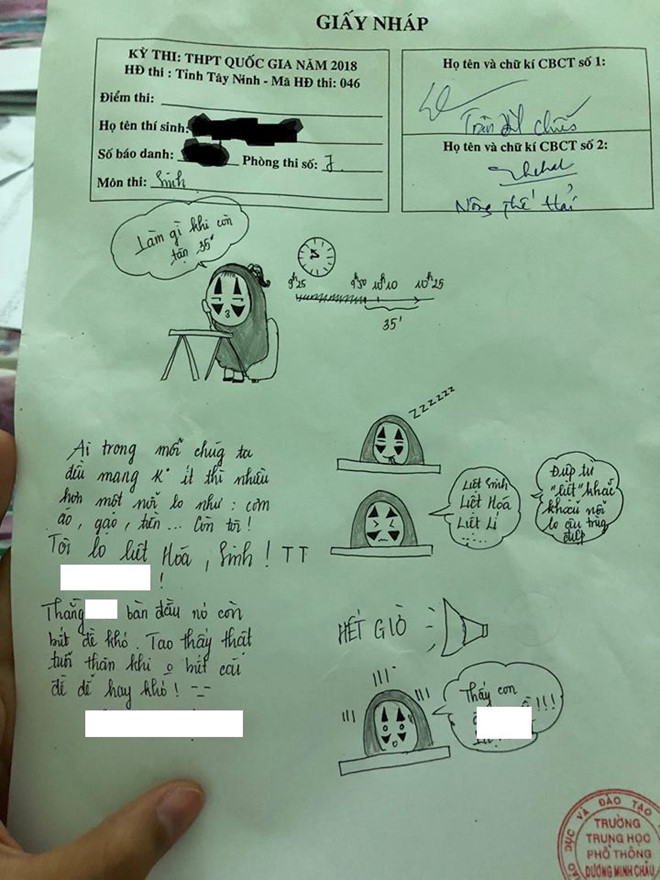 GIẤY NHÁP
KỲ THI: THPT QUỐC GIA NĂM 2018
HĐ thi : Tỉnh Tây Ninh - Mã HĐ thi: 046
Điểm thi:
Họ tên thí sinh:
Số báo danh: Phòng thi số: 7
Môn thi: Sinh
Họ tên và chữ kí CBCT số 1:
Trần
Họ tên và chữ kí CBCT số 2:
Nông Thế Hải
Làm gì khi còn
tận 35'
9h25 9h50 10h10 10h25
35'
zzzzzz
Ai trong mỗi chúng ta
đều mang k° ít thì nhiều
hơn một nỗi lo như : cơm
áo, gạo, tiền ... Còn tôi !
Tôi lo liệt Hóa, Sinh ! TT
!
Thằng bàn đầu nó còn
biết đề khó. Tao thấy thật
tủi thân khi o biết cái
đề dễ hay khó ! -_-
Liệt Sinh
Liệt Hóa
Liệt Lí
.....
Đúp từ
"liệt" khác
khoải nỗi
lo câu trùng
điệp
HẾT GIỜ
Thầy con
!!!
TRƯỜNG
TRUNG HỌC
PHỔ THÔNG
DƯƠNG MINH CHÂU
DỤC VÀ ĐÀO TẠO